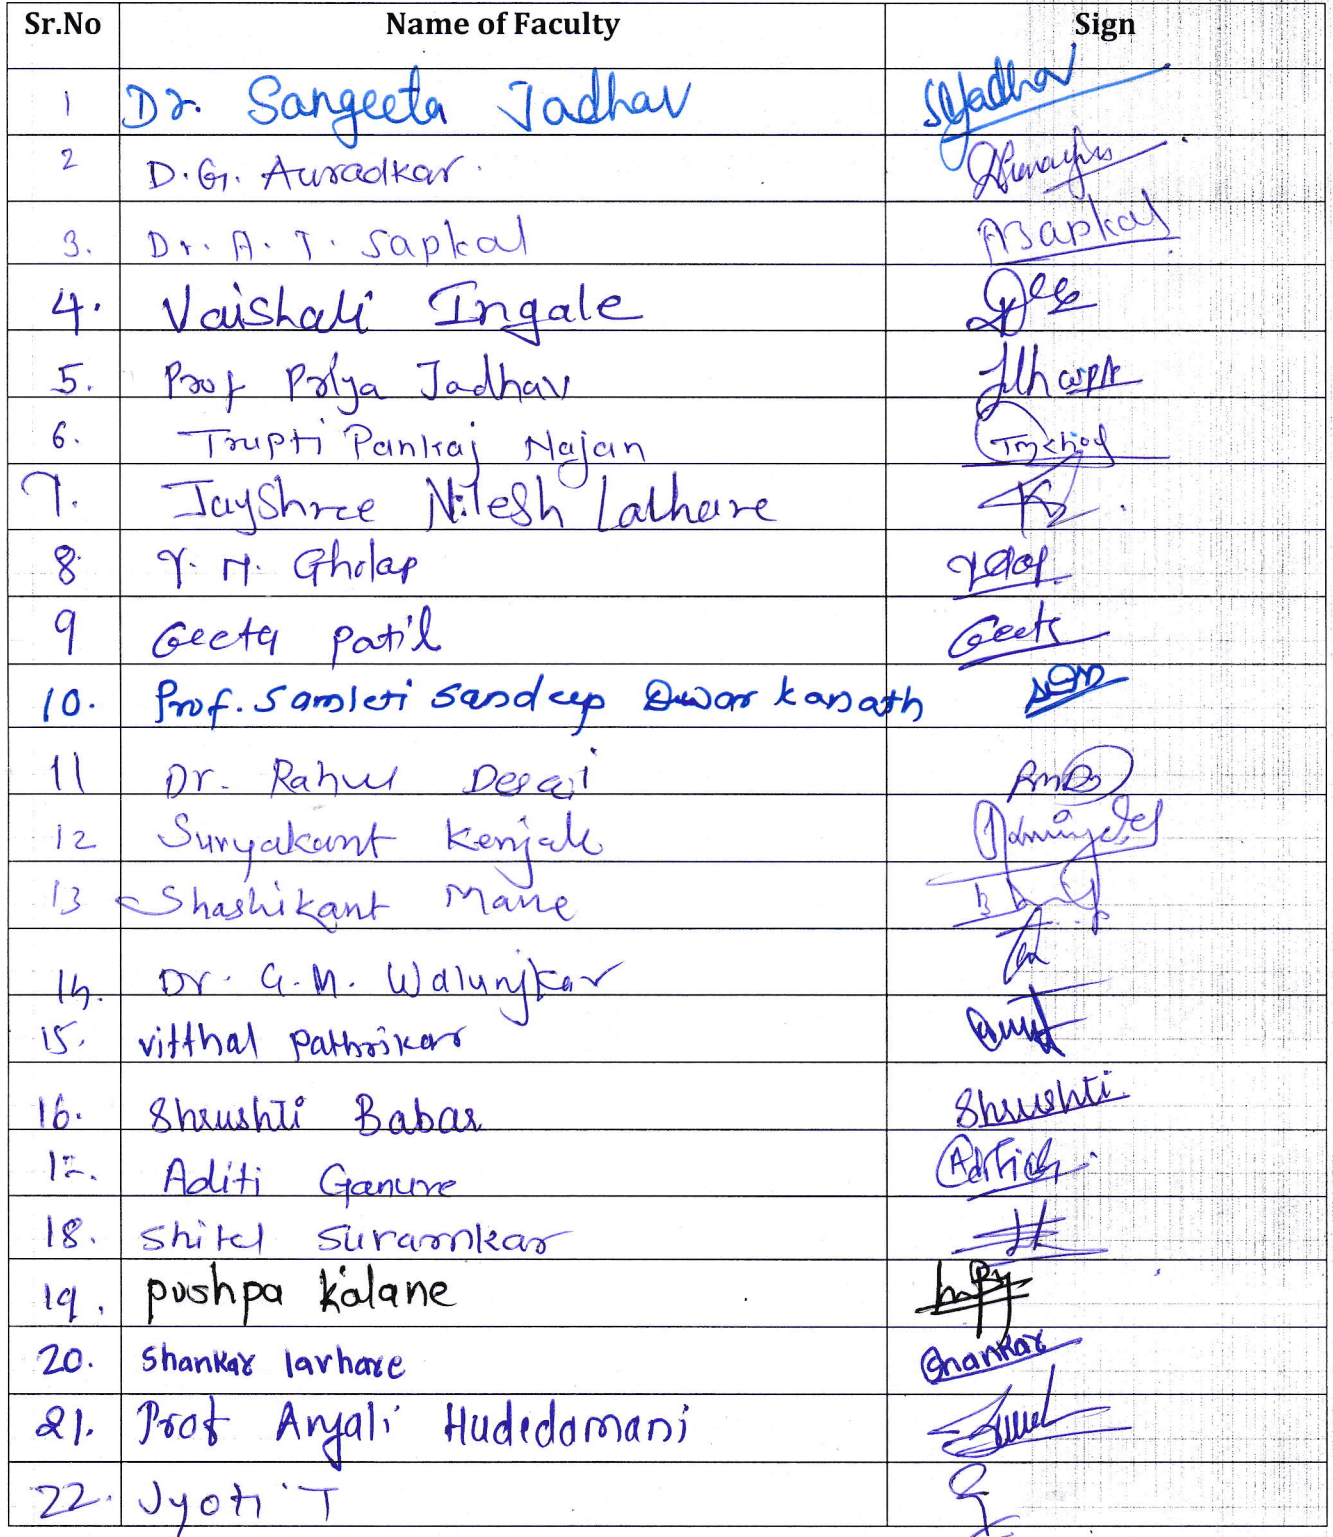 Sr.No Name of Faculty Sign
1 Dr. Sangeeta Jadhav SGJadhav
2 D.G. Auradkar.
3. Dr. A. T. Sapkal ASapkal
4. Vaishali Ingale
5. Prof Priya Jadhav
6. Trupti Pankaj Najan
7. Jayshree Nilesh Lalhare
8 Y. N. Gholap
9 Geeta Patil Geeta
10. Prof. Samleti Sandeep Dwarkanath
11 Dr. Rahul Desai
12 Suryakant Kenjale
13 Shashikant Mane
14. Dr. G.M. Walunjkar
15. vitthal pathrikar
16. Shrushti Babar Shrushti
17. Aditi Ganure
18. Shital Suramkar
19. pushpa kalane
20. Shankar lavhare Shankar
21. Prof Anjali Hudedamani
22. Jyoti T